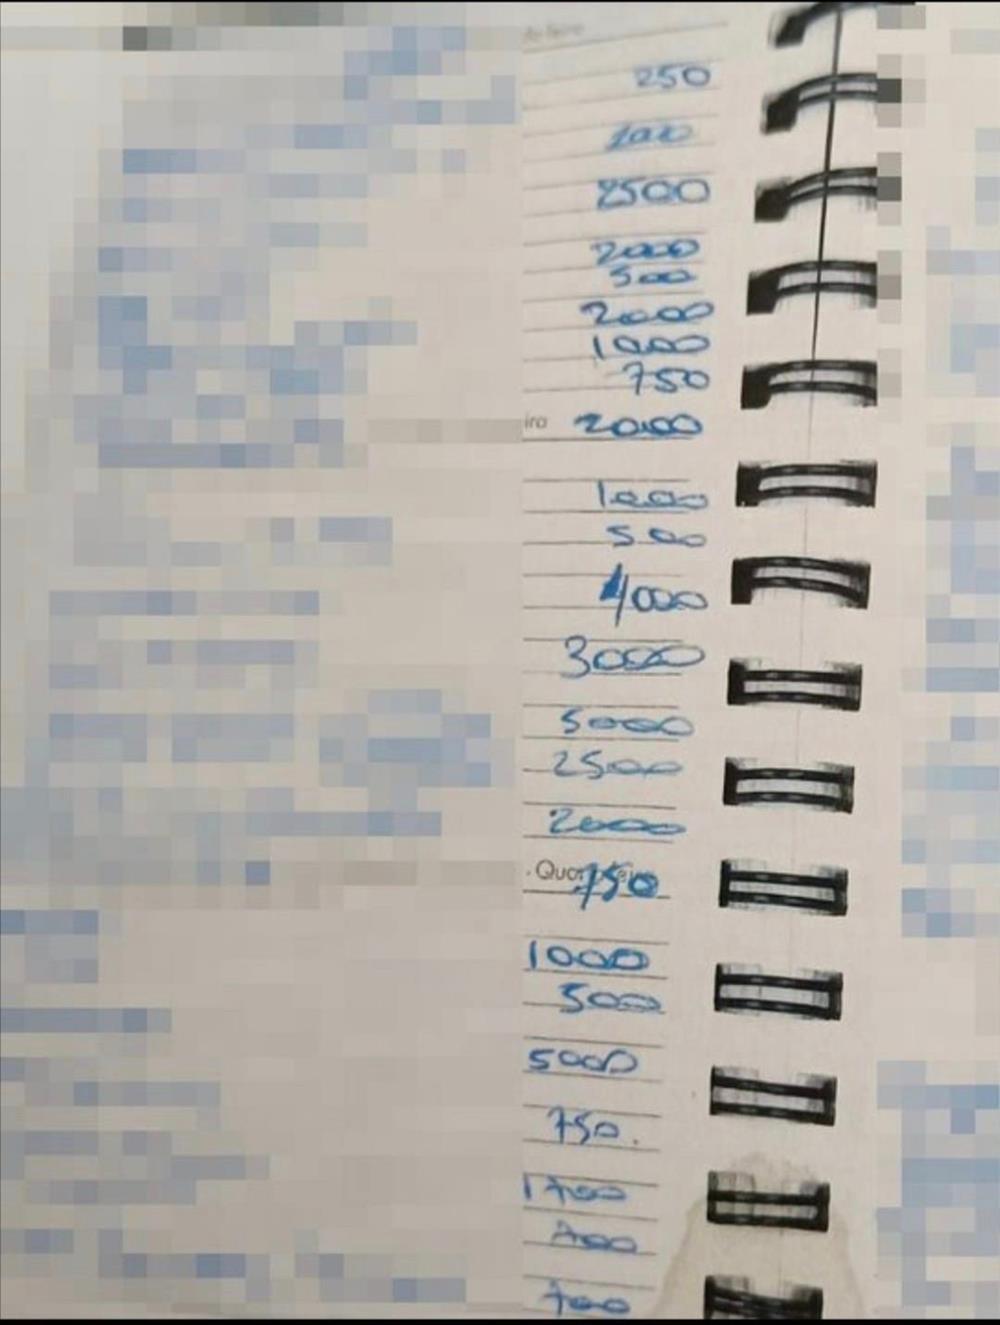 250
2500
2000
500
2000
1000
750
ira 2000
1000
500
4000
3000
5000
2500
2000
750
1000
500
5000
750.
1700
700
700